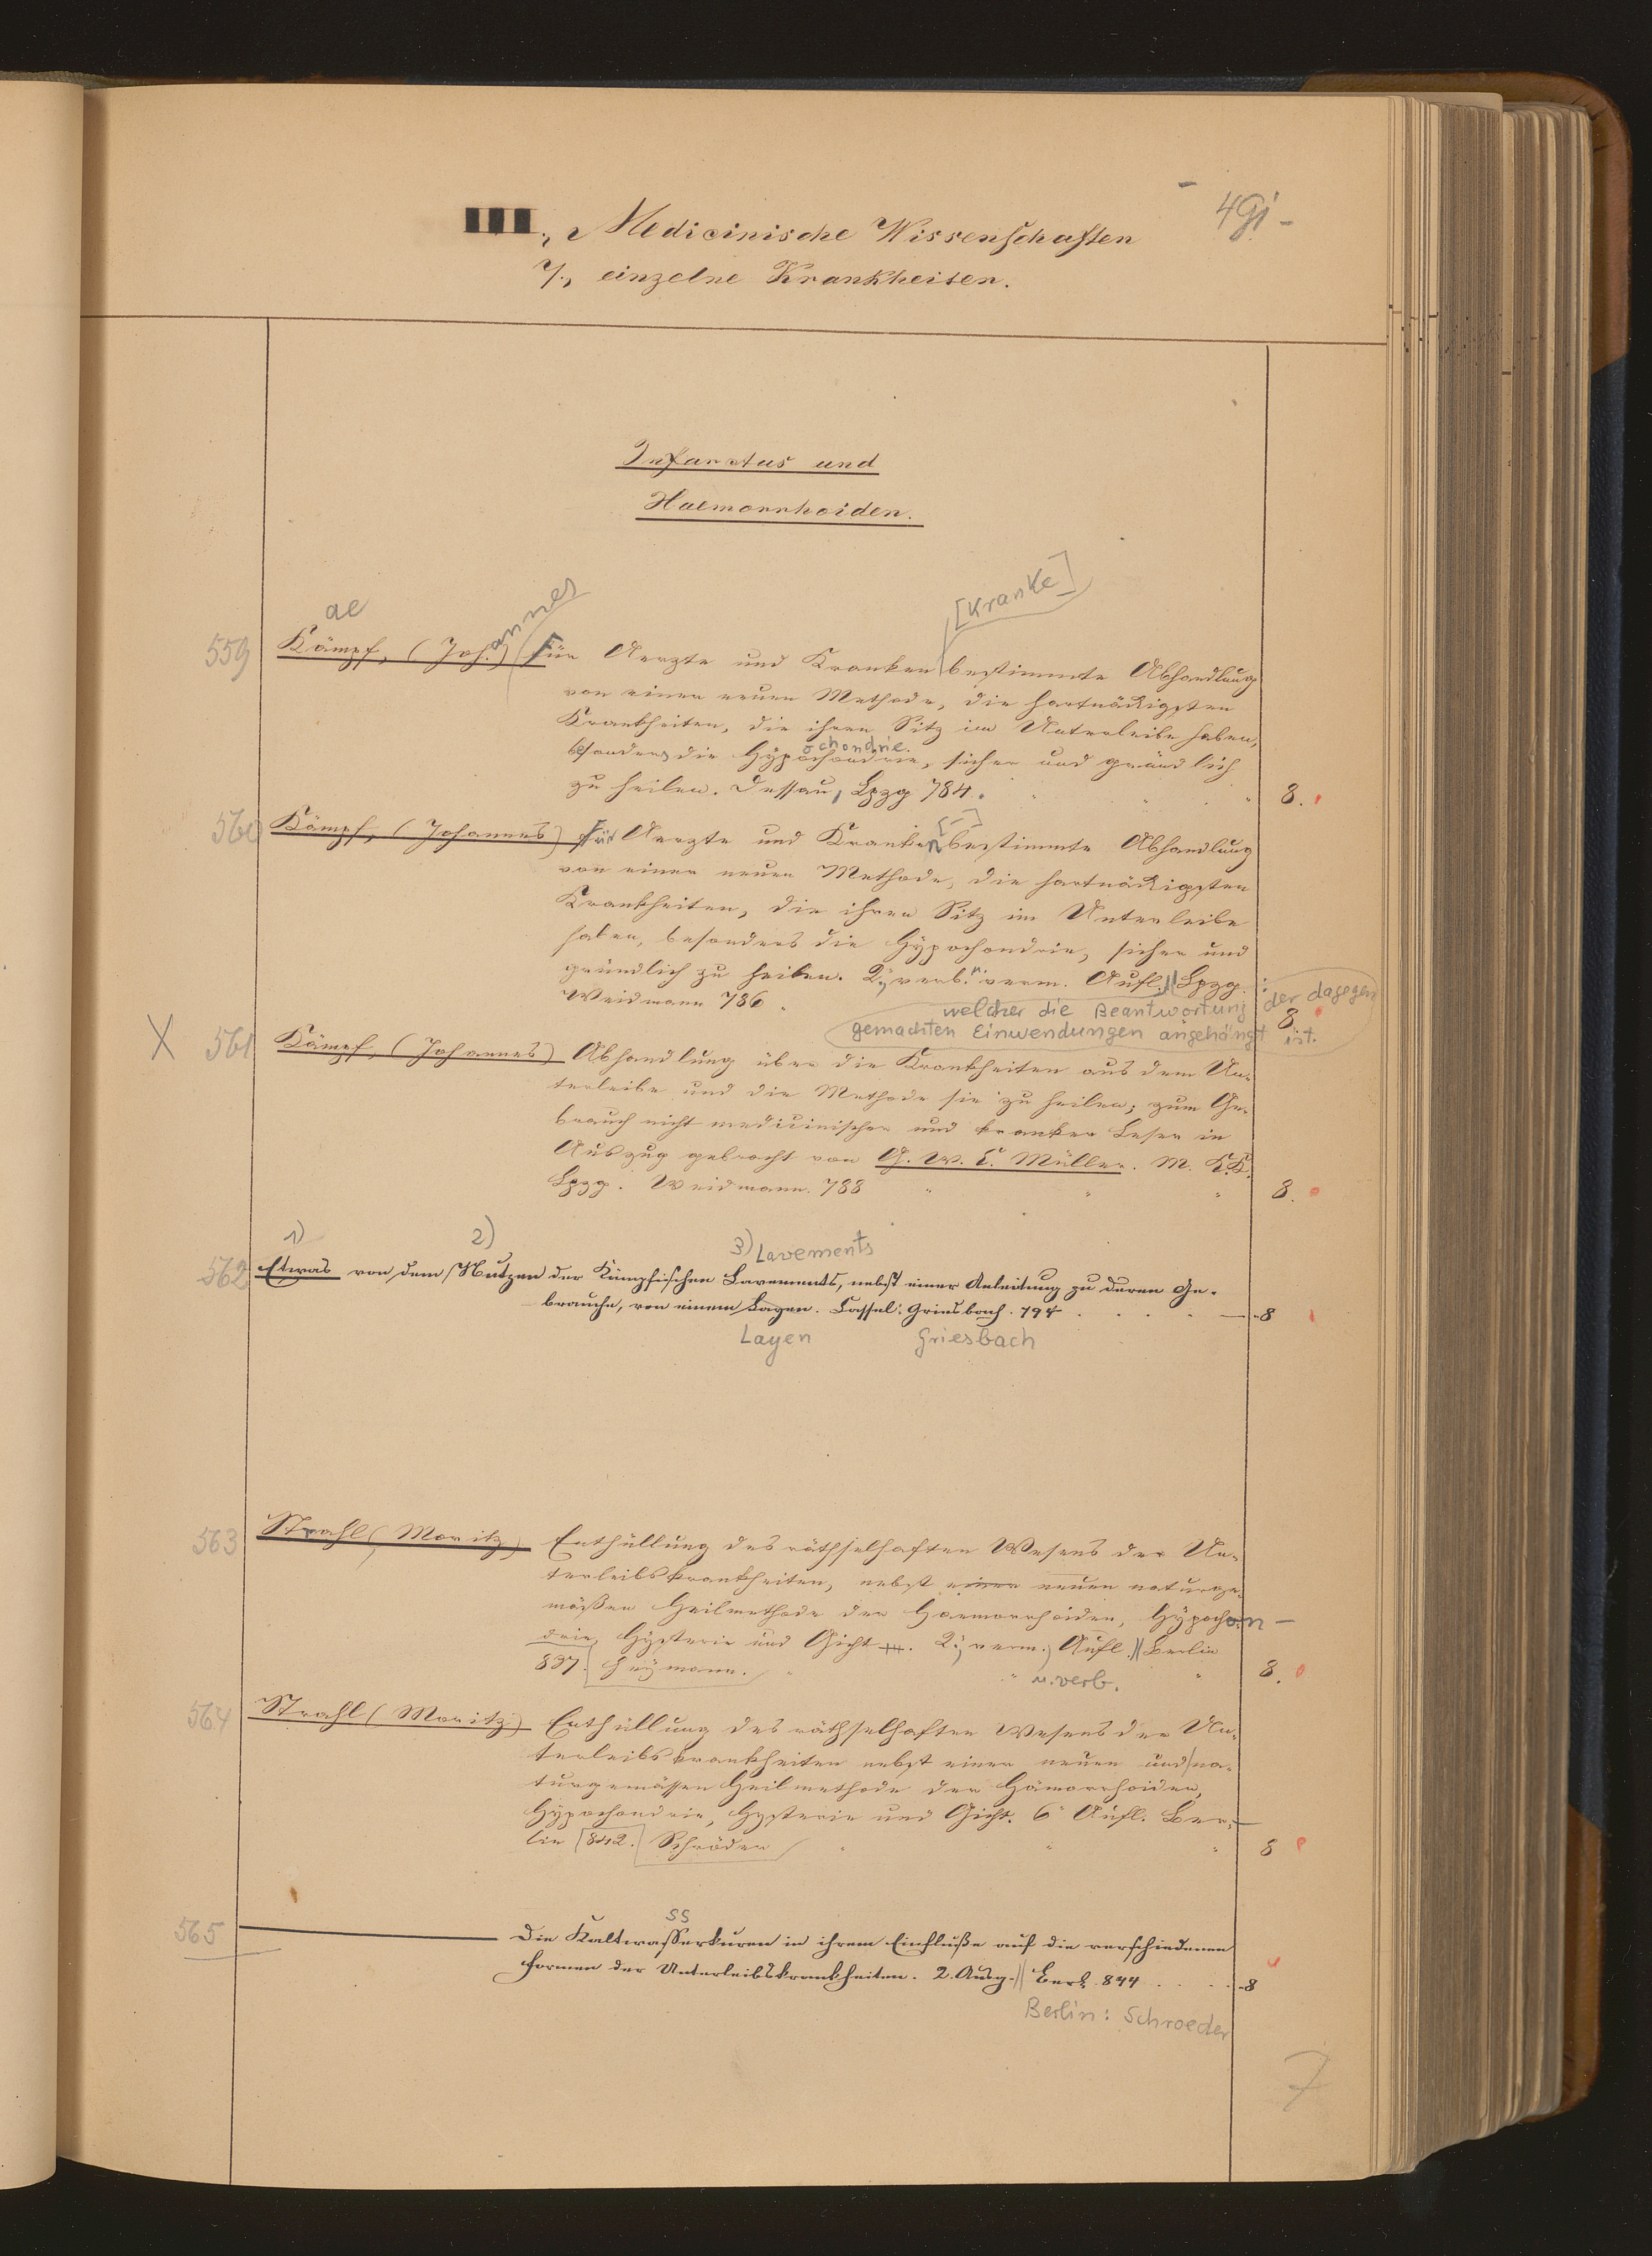 III., Medicinische Wissenschaften
7., einzelne Krankheiten.
Infarctus und
Haemorrhoiden.
ae annes [Kranke]
559 Kämpf, (Joh.) Für Aerzte und Kranken bestimmte Abhandlung
von einer neuen Methode, die hartnäckigsten
Krankheiten, die ihren Sitz im Unterleibe haben,
ochondrie.
besonders die Hypochondrie, sicher und gründlich
zu heilen. Dessau, Lpzg 784. 8.
[-]
560 Kämpf, (Johannes) Für Aerzte und Kranken bestimmte Abhandlung
von einer neuen Methode, die hartnäckigsten
Krankheiten, die ihren Sitz im Unterleibe
haben, besonders die Hypochondrie, sicher und
gründlich zu heilen. 2., verb. u. verm. Aufl. Lpzg.
Weidmann 786. 8
welcher die Beantwortung der dagegen
gemachten Einwendungen angehängt ist.
X 561 Kämpf, (Johannes) Abhandlung über die Krankheiten aus dem Un-
terleibe und die Methode sie zu heilen; zum Ge-
brauch nicht medicinischer und kranker Leser in
Auszug gebracht von G. W. C. Müller. M. K.K.
Lpzg. Weidmann. 788 8.
1) 2) 3) Lavements
562 Etwas von dem Nutzen der Kämpfischen Lavements, nebst einer Anleitung zu deren Ge-
brauche, von einem Layen. Cassel: Griesbach. 794 8
Layen Griesbach
563 Strahl (Moritz) Enthüllung des räthselhaften Wesens der Un-
terleibskrankheiten, nebst einer neuen naturge-
mäßen Heilmethode der Haemorrhoiden, Hypochon-
drie, Hysterie und Gicht. 2., verm., Aufl. Berlin
837. Heymann. 8.
u. verb.
564 Strahl (Moritz) Enthüllung des räthselhaften Wesens der Un-
terleibskrankheiten nebst einer neuen und na-
turgemässen Heilmethode der Hämorrhoiden,
Hypochondrie, Hysterie und Gicht. 6 Aufl. Ber-
lin 842. Schröder 8
ss
565 Die Kaltwasserkuren in ihrem Einfluße auf die verschiedenen
Formen der Unterleibskrankheiten. 2. Ausg. Berl. 844 8
Berlin: Schroeder
7